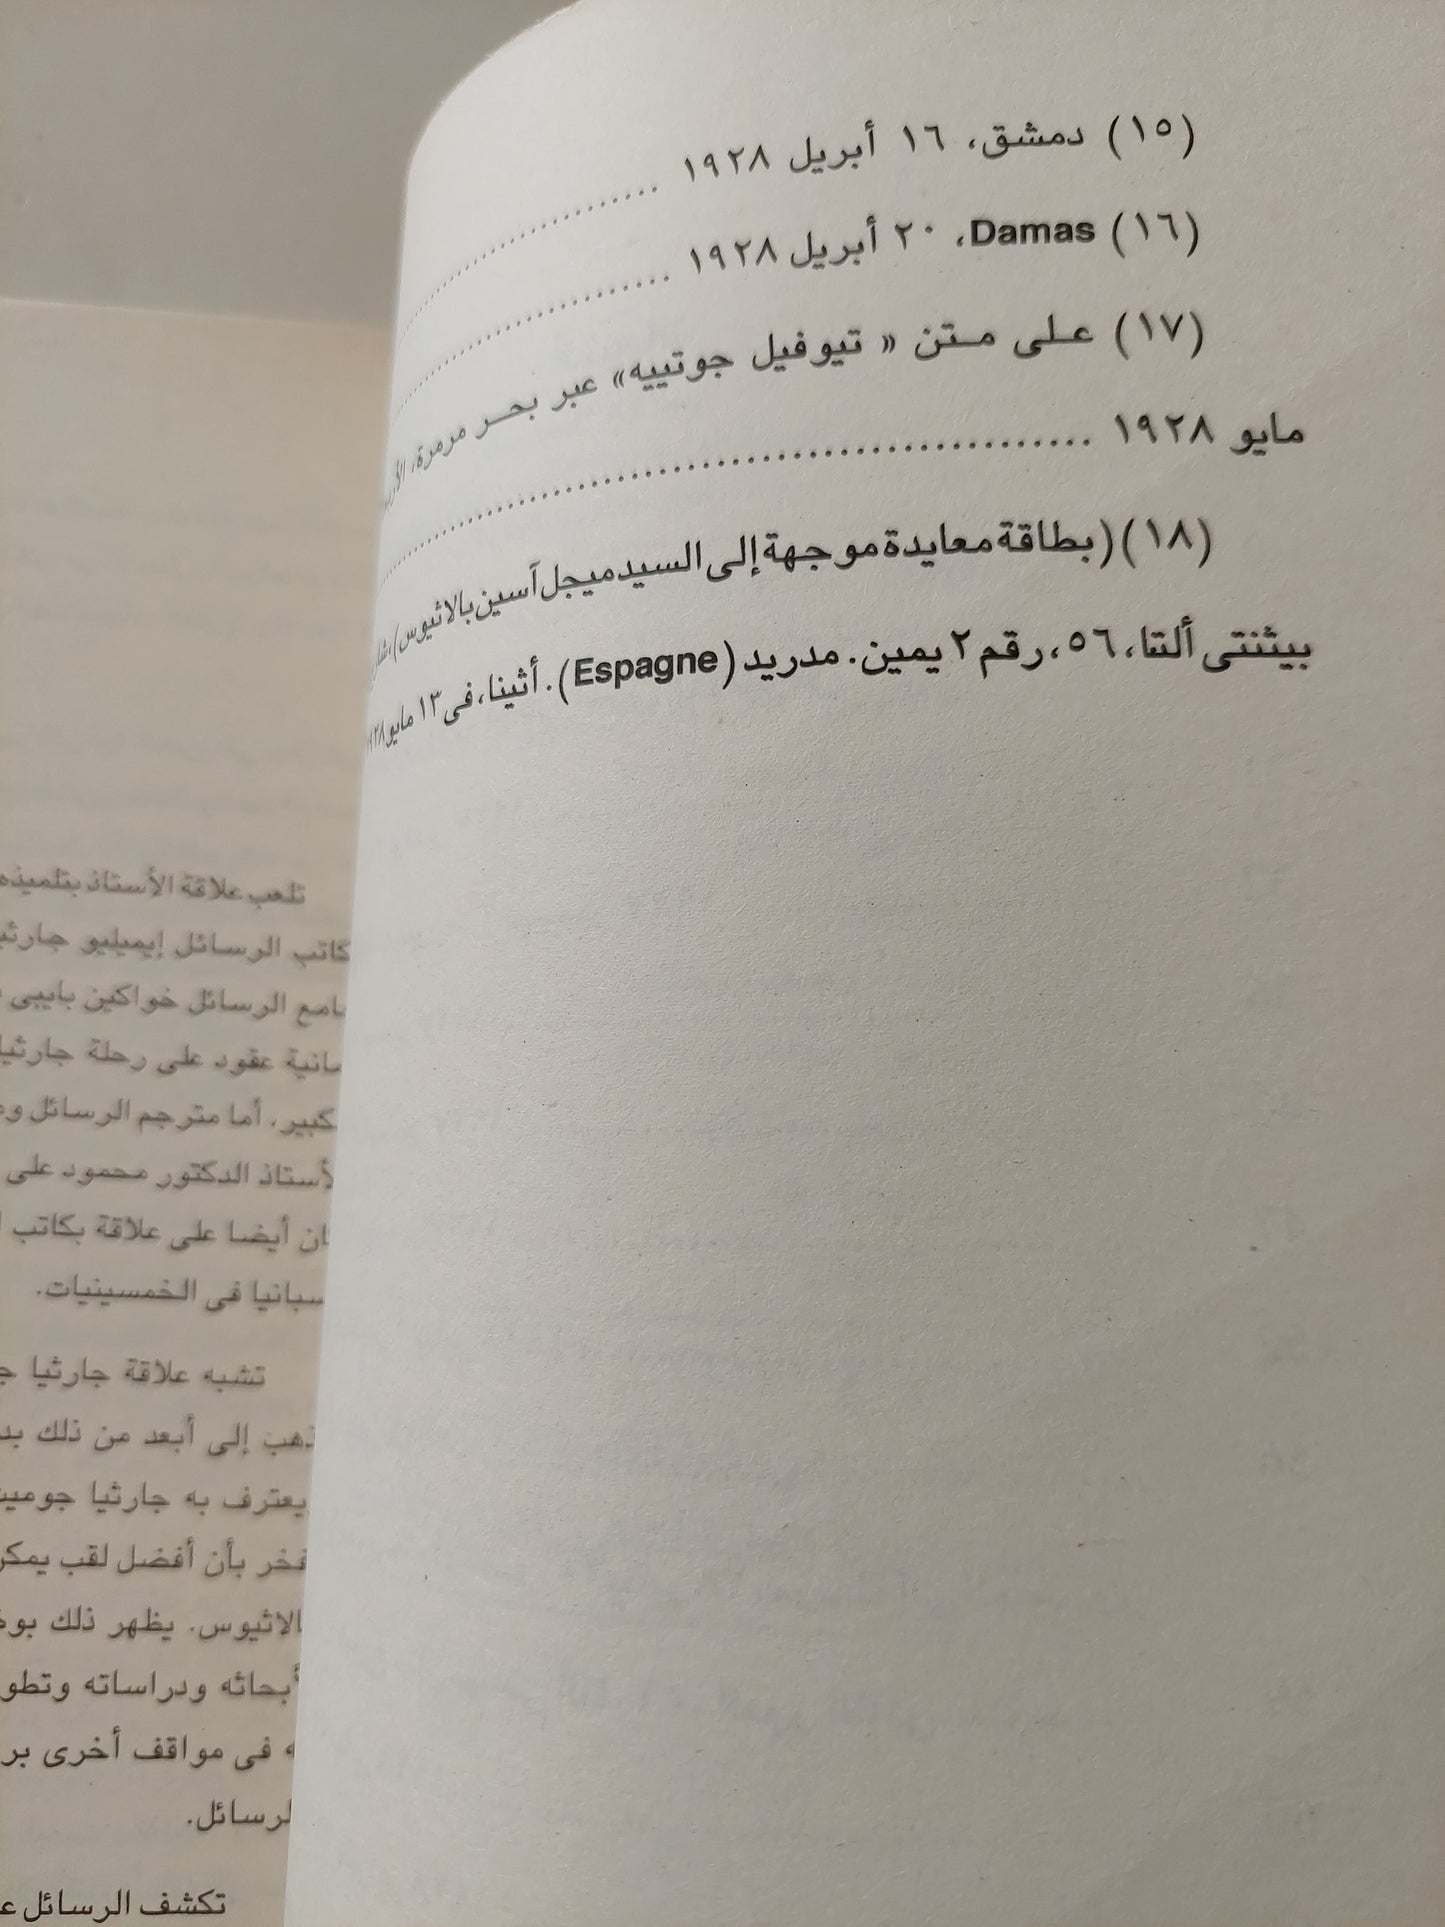 (١٥) دمشق، ١٦ أبريل ١٩٢٨ ..............................
(١٦) Damas، ٢٠ أبريل ١٩٢٨ ..............................
(١٧) على متن « تيوفيل جوتييه» عبر بحر مرمرة،
مايو ١٩٢٨ ..............................
(١٨) (بطاقة معايدة موجهة إلى السيد ميجل آسين بالاثيوس)،
بيثنتى ألتا، ٥٦، رقم ٢ يمين. مدريد (Espagne). أثينا، فى ١٣ مايو ١٩٢٨
تلعب علاقة الأستاذ بتلميذه
كاتب الرسائل إيميليو
الرسائل خواكين بايبى
عقود على رحلة
أما مترجم الرسائل
الدكتور محمود على
أيضا على علاقة بكاتب
فى الخمسينيات.
تشبه علاقة جارثيا
إلى أبعد من ذلك
يعترف به جارثيا
بأن أفضل لقب
يظهر ذلك
ودراساته
فى مواقف أخرى
تكشف الرسائل